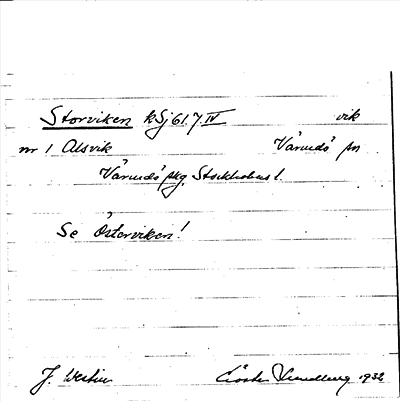 Storviken kSj617 IV vik
nr 1 Alsvik Värmdö sn
Värmdö skg. Stockholms l.
Se Österviken!
J. Westin Gösta Lundberg 1932